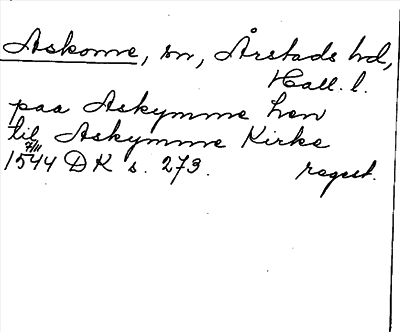 Askome, sn, Årstads hd,
Hall. l.
paa Askymme hen
til Askymme Kirke
1544 7/11 DK s. 273. regest.